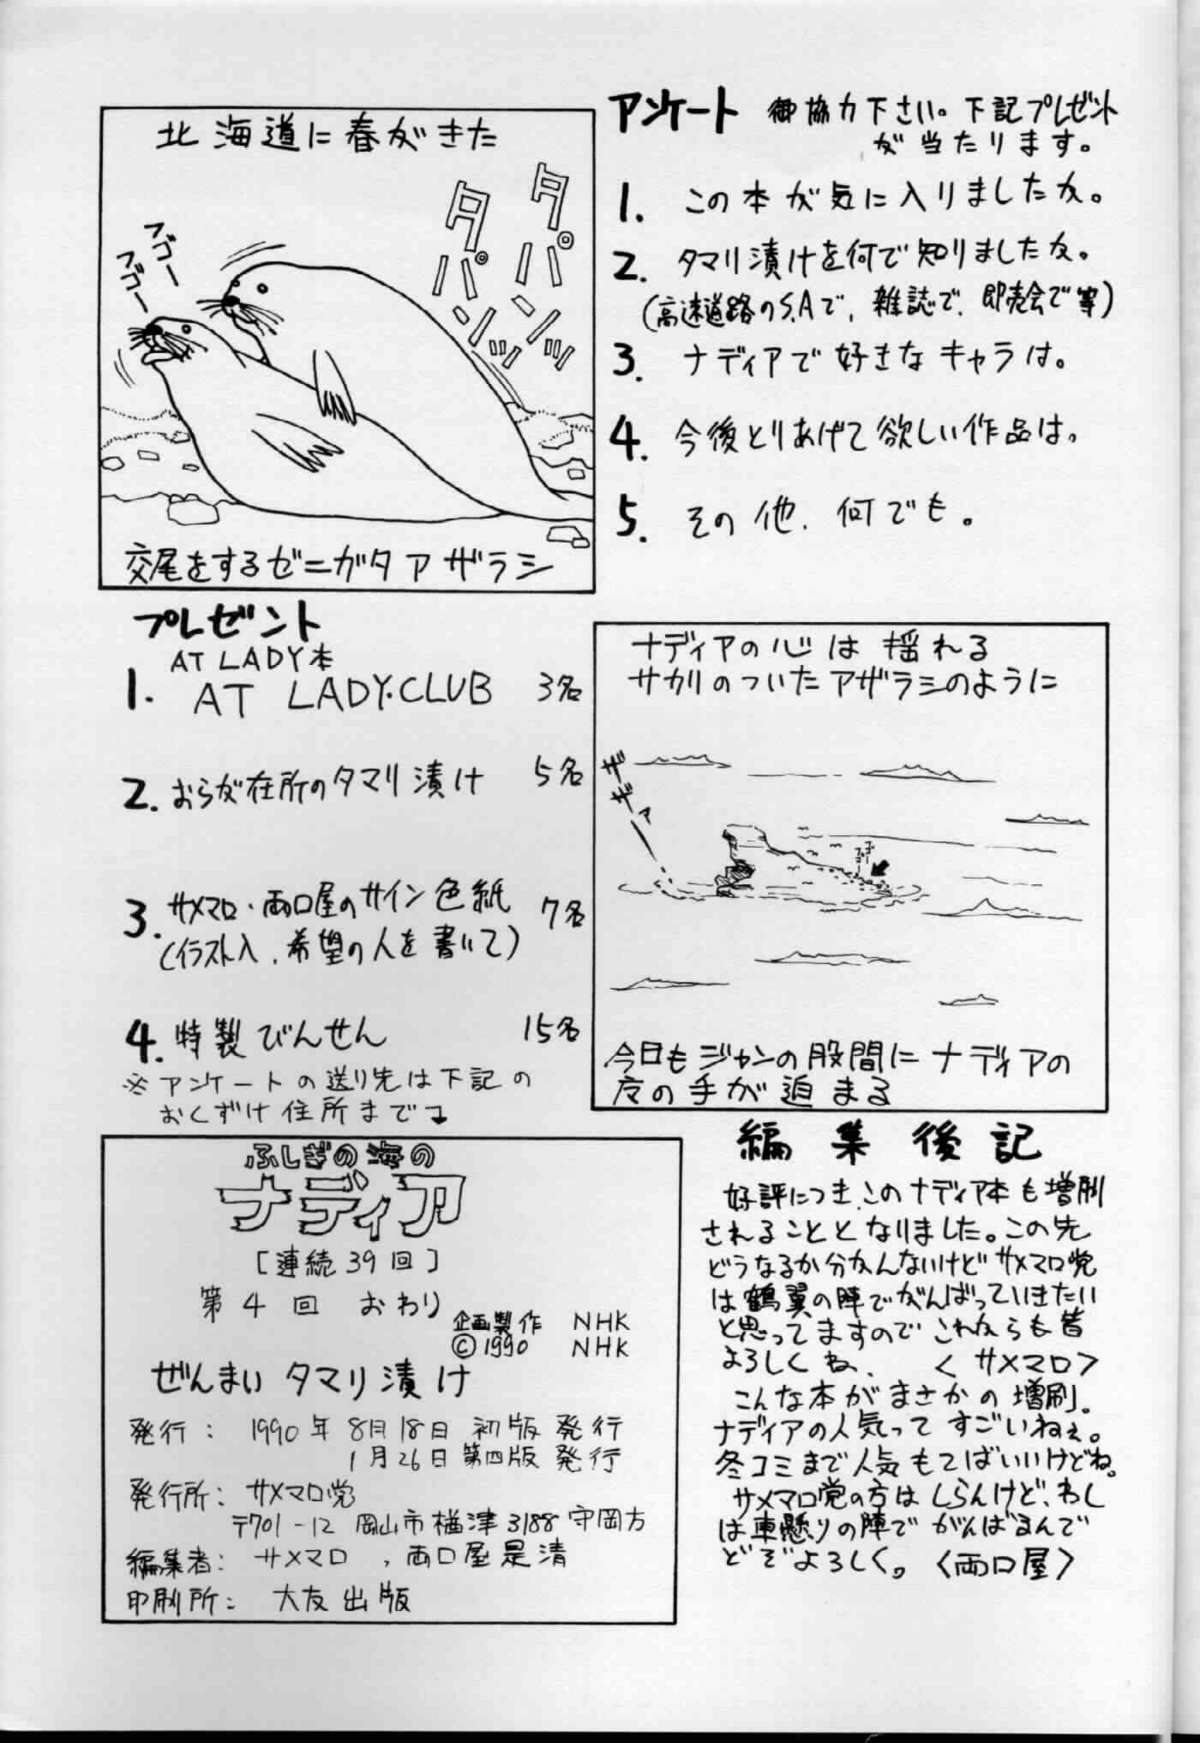 北海道に春がきた
フゴー
フゴー
タパンッ
タパンッ
交尾をするゼニガタアザラシ
アンケート 御協力下さい。下記プレゼント
が当たります。
1. この本が気に入りましたか。
2. タマリ漬けを何で知りましたか。
(高速道路のS.Aで、雑誌で、即売会で等)
3. ナディアで好きなキャラは。
4. 今後とりあげて欲しい作品は。
5. その他、何でも。
プレゼント
AT LADY本
1. AT LADY・CLUB 3名
2. おらが在所のタマリ漬け 5名
3. サメマロ・両口屋のサイン色紙 7名
(イラスト入、希望の人を書いて)
4. 特製びんせん 15名
※アンケートの送り先は下記の
おくずけ住所まで
ナディアの心は揺れる
サカリのついたアザラシのように
ザ
ザァ
今日もジャンの股間にナディアの
の手が迫まる
ふしぎの海の
ナディア
[連続39回]
第4回 おわり
企画製作 NHK
©1990 NHK
ぜんまいタマリ漬け
発行: 1990年8月18日 初版発行
1月26日 第四版発行
発行所: サメマロ党
〒701-12 岡山市楢津3188 守岡方
編集者: サメマロ、両口屋是清
印刷所: 大友出版
編集後記
好評につき、このナディア本も増刷
されることとなりました。この先
どうなるか分かんないけどサメマロ党
は鶴翼の陣でがんばっていきたい
と思ってますのでこれからも皆
よろしくね、 〈サメマロ〉
こんな本がまさかの増刷。
ナディアの人気ってすごいねぇ。
冬コミまで人気もてばいいけどね。
サメマロ党の方はしらんけど、わし
は車懸りの陣でがんばるんで
どぞよろしく。〈両口屋〉